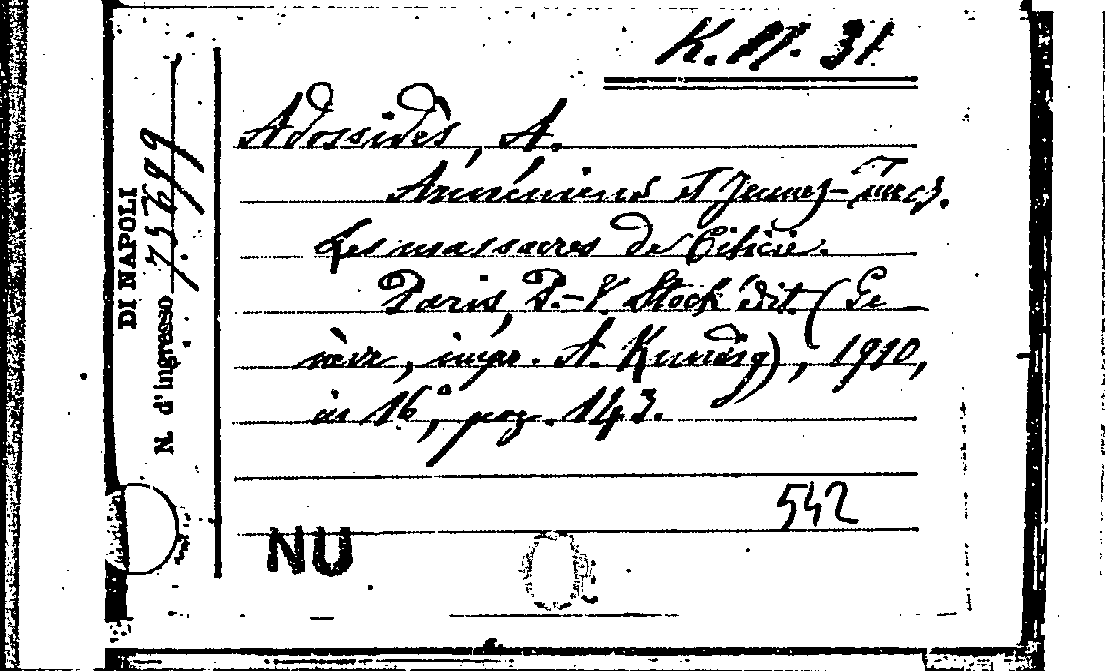 K. PP. 31
Adossidès, A.
Arméniens et Jeunes-Turcs.
Les massacres de Cilicie.
Paris, P.-V. Stock édit. (Ge
nève, impr. A. Kundig), 1910,
in 16°, pag. 143.
542
NU
DI NAPOLI
N. d'ingresso